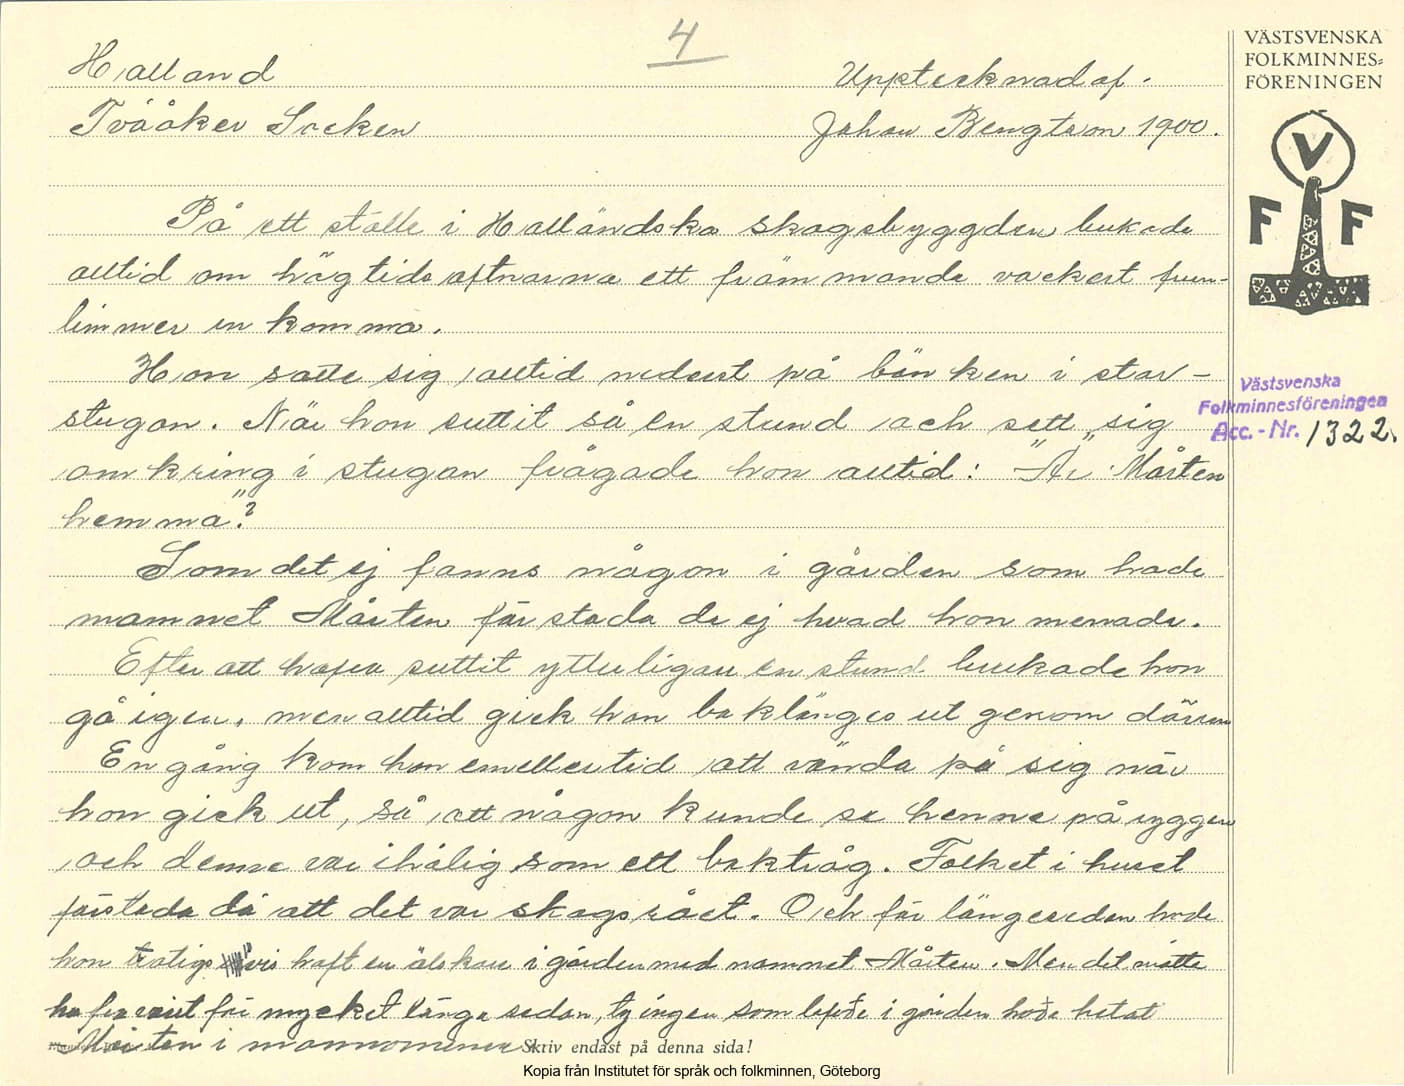 4
Halland
Upptecknad af
Tvååker Socken
Johan Bengtson 1900.
På ett ställe i Halländska skogsbyggden brukade
alltid om högtidsaftnarna ett främmande vackert fruen-
timmer in komma.
Hon satte sig alltid nederst på bänken i stor-
stugan. När hon suttit så en stund och sett sig
omkring i stugan frågade hon alltid: "Är Mårten
hemma"?
Som det ej fanns någon i gården som hade
namnet Mårten förstodo de ej hvad hon menade.
Efter att hafva suttit ytterligare en stund brukade hon
gå igen, men alltid gick hon baklänges ut genom dörren
En gång kom hon emellertid att vända på sig när
hon gick ut, så att någon kunde se henne på ryggen
och denne var ihålig som ett baktråg. Folket i huset
förstodo då att det var skogsrået. Och för längesedan hade
hon troligsvis haft en älskare i gården med namnet Mårten. Men det måtte
hafva varit för mycket länge sedan, ty ingen som lefvde i gården hade hetat
Mårten i mannominne
Skriv endast på denna sida!
Kopia från Institutet för språk och folkminnen, Göteborg
VÄSTSVENSKA
FOLKMINNES-
FÖRENINGEN
V
F F
Västsvenska
Folkminnesföreningen
Acc.-Nr. 1322.